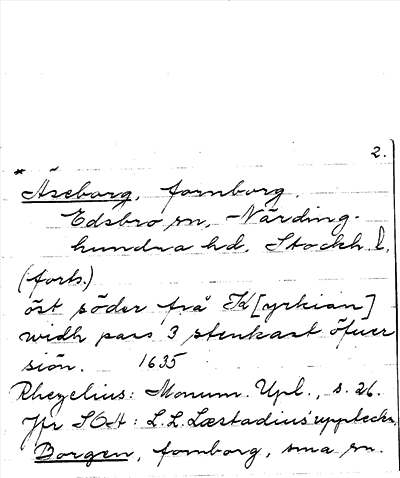 2.
* Äseborg, fornborg.
Edsbro sn, Närding-
hundra hd. Stockh. l.
(forts.)
öst söder frå K[yrkian]
widh pass 3 stenkast öfuer
siön. 1635
Rhezelius: Monum. Upl., s. 26.
Jfr SOA: L. L. Læstadius' uppteckn.
Borgen, fornborg, sma sn.